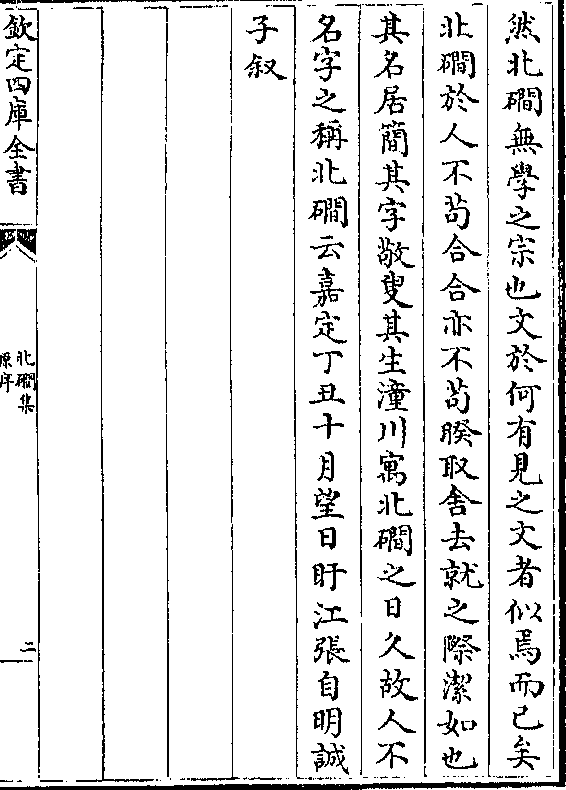 然北磵無學之宗也文於何有見之文者似焉而已矣
北磵於人不苟合合亦不苟暌取舍去就之際潔如也
其名居簡其字敬叟其生潼川寓北磵之日久故人不
名字之稱北磵云嘉定丁丑十月望日盱江張自明誠
子叙
欽定四庫全書
北磵集
原序
二